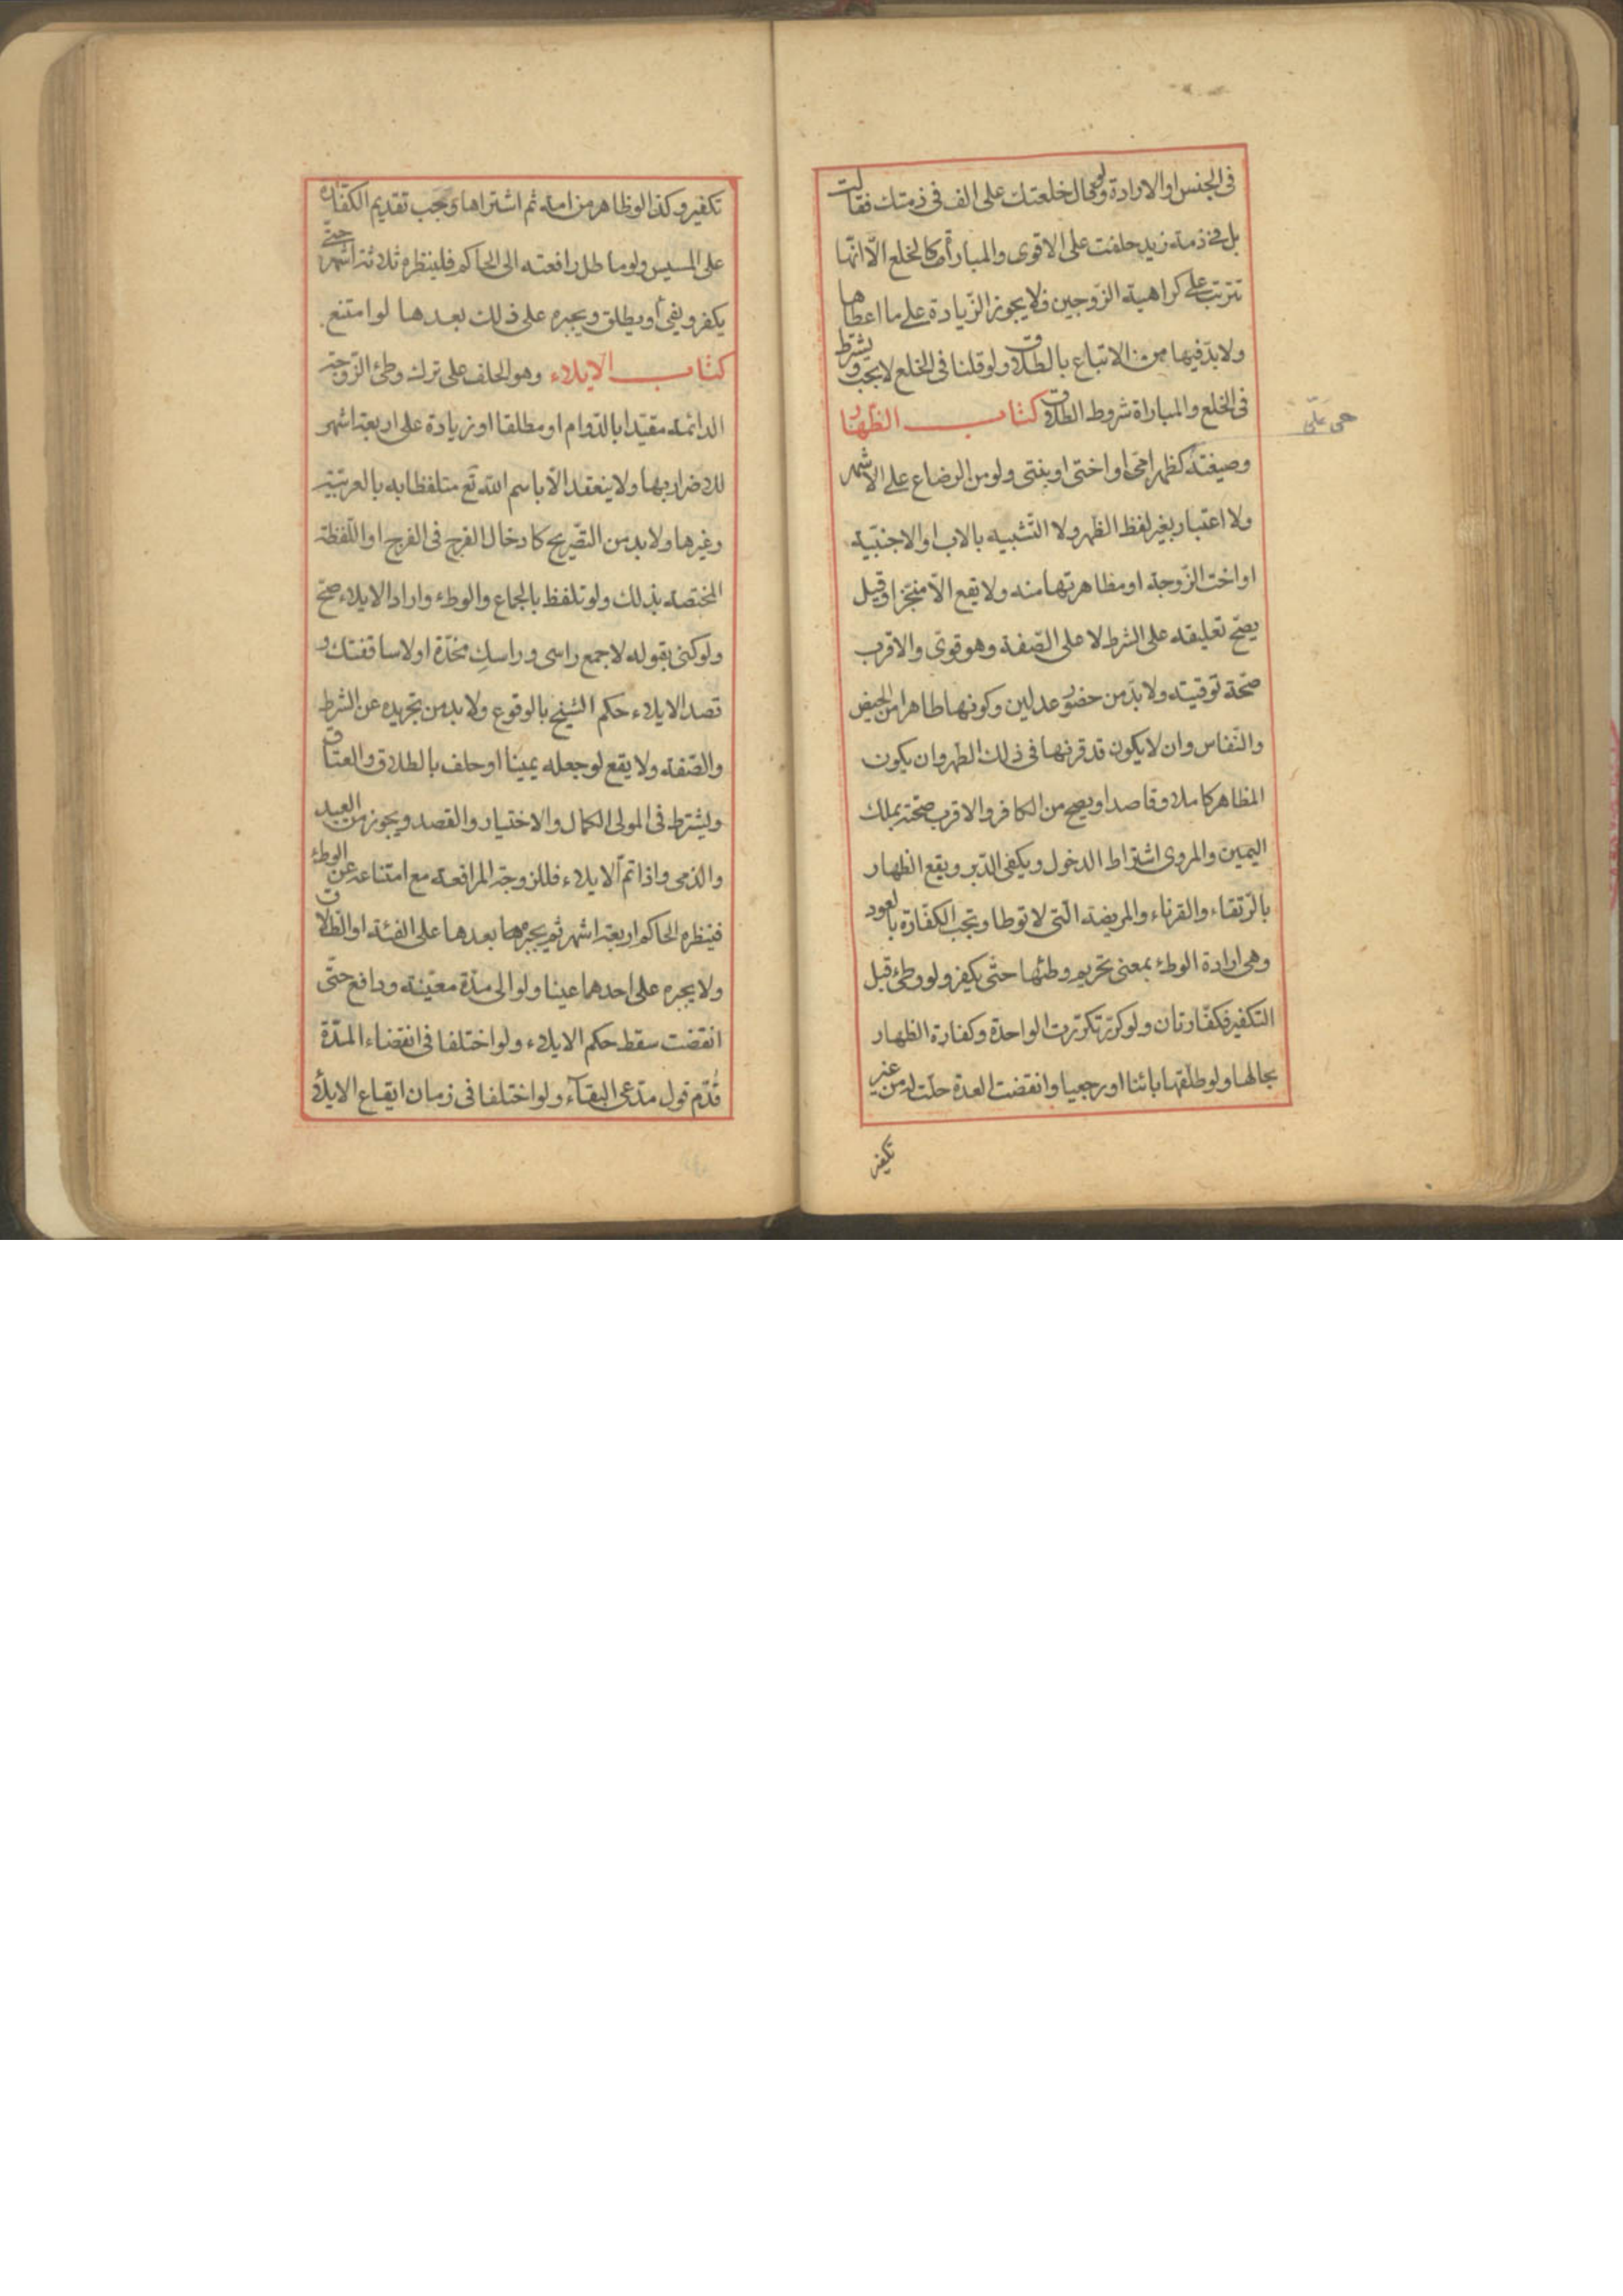 فى الجنس او الارادة ولو قال خلعتك على الف فى ذمتك فقالت
بل فى ذمة زيد حلفت على الاقوى والمبارأة كالخلع الّا انّها
تترتب على كراهية الزّوجين فلا يجوز الزّيادة على ما اعطاها
ولا بدّ فيها من الاتباع بالطلاق ولو قلنا فى الخلع لا يجب ويشترط
فى الخلع والمباراة شروط الطلاق كتاب الظّهار
وصيغته كظهر امّى او اختى او بنتى ولو من الرضاع على الاشهر
ولا اعتبار بغير لفظ الظهر ولا التّشبيه بالاب او الاجنبّية
او اخت الزّوجة او مظاهرتها منه ولا يقع الّا منجّزا وقيل
يصحّ تعليقه على الشرط لا على الصّفة وهو قوىّ والاقرب
صحّة توقيته ولا بدّ من حضور عدلين وكونها طاهرا من الحيض
والنّفاس وان لا يكون قد قربها فى ذلك الطهر وان يكون
المظاهر كاملا وقاصدا ويصح من الكافر والاقرب صحّته بملك
اليمين والمروى اشتراط الدخول ويكفى الدّبر ويقع الظهار
بالرّتقاء والقرناء والمريضة الّتى لا توطا وتجب الكفّارة بالعود
وهى ارادة الوطء بمعنى تحريم وطئها حتّى يكفر ولو وطئ قبل
التكفير فكفّارتان ولو كرّر تكرّرت الواحدة وكفارة الظهار
بحالها ولو طلّقها بائنا او رجعيا وانقضت العدة حلّت له من غير
تكفير
تكفير وكذا لو ظاهر من امة ثم اشتراها ويجب تقديم الكفّارة
على المسيس ولو ماطل رافعته الى الحاكم فلينظره ثلاثة اشهر حتّى
يكفر ويفئ او يطلق ويجبره على ذلك بعدها لو امتنع
كتاب الايلاء وهو الحلف على ترك وطئ الزّوجة
الدائمة مقيّدا بالدّوام او مطلقا او زيادة على اربعة اشهر
للاضرار بها ولا ينعقد الّا باسم الله تع متلفظا به بالعربيّة
وغيرها ولا بد من التصّريح كادخال الفرج فى الفرج او اللّفظة
المختصة بذلك ولو تلفظ بالجماع والوطء واراد الايلاء صحّ
ولو كنى بقوله لا جمع راسى وراسكِ مخدّة او لا ساقفتك و
قصد الايلاء حكم الشيخ بالوقوع ولا بد من تجريده عن الشرط
والصّفة ولا يقع لو جعله يمينا او حلف بالطلاق والعتاق
ويشترط فى المولى الكمال والاختيار والقصد ويجوز من العبد
والذمى واذا تمّ الايلاء فللزوجة المرافعة مع امتناعه عن الوطء
فينظره الحاكم اربعة اشهر ثم يجبره بعدها على الفئة او الطّلاق
ولا يجبره على احدهما عينا ولو الى مدّة معيّنة ودافع حتّى
انقضت سقط حكم الايلاء ولو اختلفا فى انقضاء المدّة
قُدّم قول مدّعى البقآء ولو اختلفا فى زمان ايقاع الايلاء